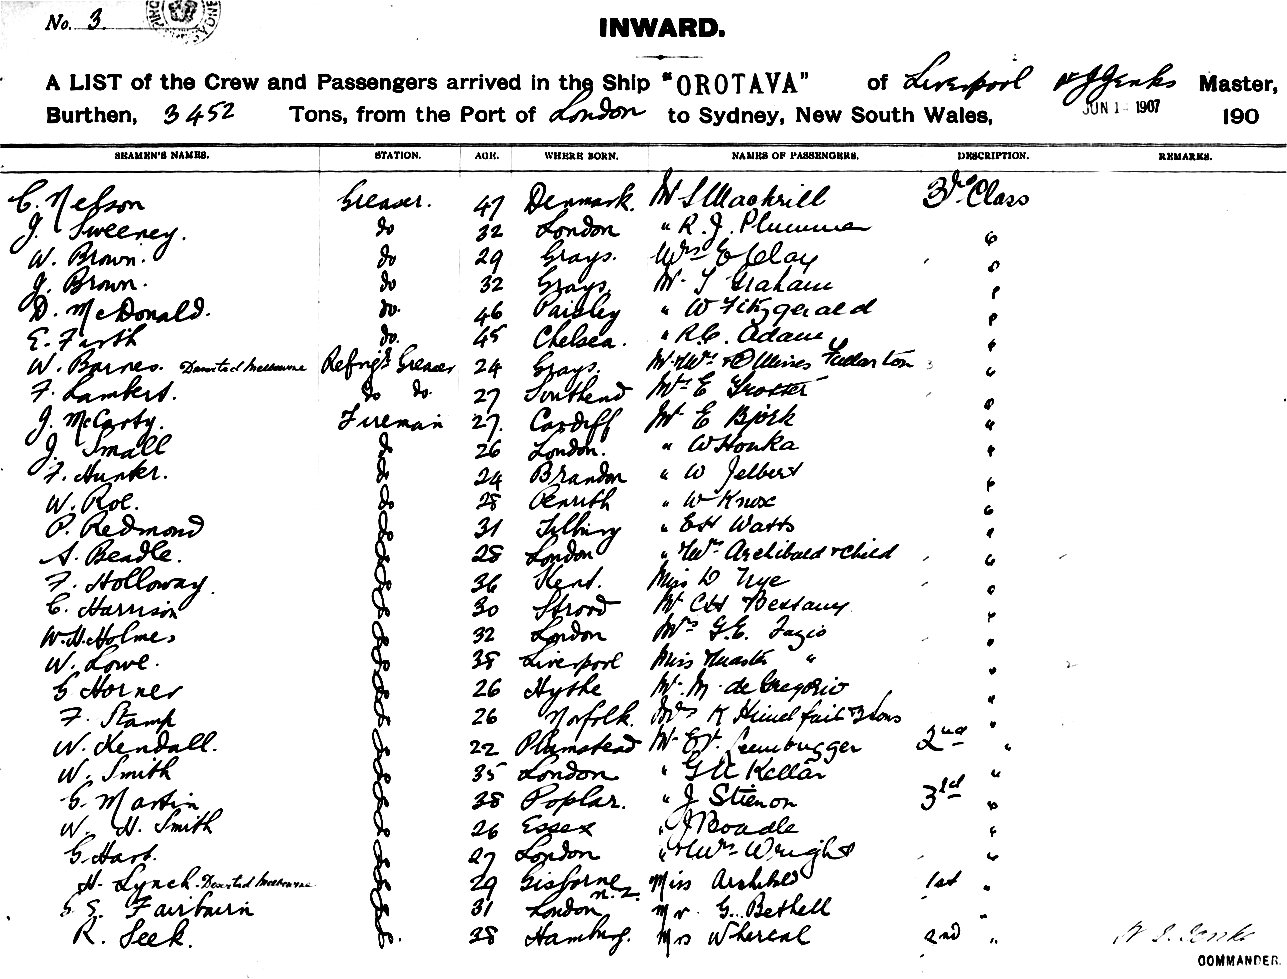 No. 3.
INWARD.
A LIST of the Crew and Passengers arrived in the Ship "OROTAVA" of Liverpool Jenks Master,
Burthen, 3452 Tons, from the Port of London to Sydney, New South Wales, JUN 1 - 1907 190
SEAMEN'S NAMES. STATION. AGE. WHERE BORN. NAMES OF PASSENGERS. DESCRIPTION. REMARKS.
C. Nelson Greaser. 47 Denmark. Mr S Mackrill 3rd Class
J. Sweeney. do 32 London " R. J. Plummer "
W. Brown. do 29 Grays. Mrs E Clay "
J. Brown. do 32 Grays. Mr T Graham "
D. McDonald. do. 46 Paisley " W Fitzgerald "
E. Firth do. 45 Chelsea. " R C. Adam "
W. Barnes. Deserted Melbourne Refng. Greaser 24 Grays. Mr & Mrs & Fullarton "
F. Lambert. do do. 27 Southend Mrs E "
J. McCarty. Fireman 27. Cardiff Mr E Björk "
J. Small do 26 London. " W Honka "
F. Hunter. do 24 Brandon " W Jelbert "
W. Roe. do 28 Penrith " W Knox "
P. Redmond do 31 Tilbury " E H Watts "
A. Beadle. do 28 London " & Mrs Archibald & Child "
F. Holloway. do 36 Kent. Miss D Nye "
C. Harrison do 30 Strood Mr C H Bessany "
W. H. Holmes do 32 London Mrs G. E. Fazio "
W. Lowe. do 38 Liverpool Miss " "
G Horner do 26 Hythe Mr. M. de Gregorio "
F. Stamp do 26 Norfolk. Mrs K Himelfait & 2 sons "
W. Kendall. do 22 Plumstead Mr 2nd "
W. Smith do 35 London " Kellar "
C. Martin do 38 Poplar. " J Stienon 3rd "
W. H. Smith do 26 Essex " J Boadle "
G. Hart. do 27 London " & Mrs Wright "
H. Lynch. Deserted Melbourne do 29 Gisborne N.Z. Miss Archbed 1st "
G E. Fairbairn do 31 London Mr G. Bethell "
R. Seek. do. 28 Hamburg. Mrs Whereat 2nd "
COMMANDER.